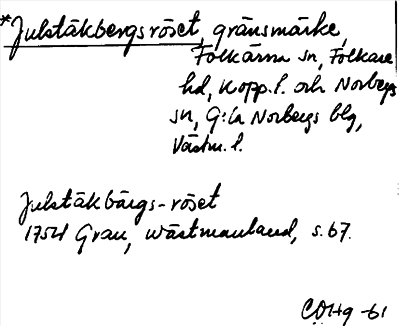 *Julstäkbergsröset, gränsmärke,
Folkärna sn, Folkare
hd, Kopp. l. och Norbergs
sn, G:la Norbergs blg,
Västm. l.
Julstäkbärgs-röset
1754 Grau, Wästmanland, s. 67.
COHg -61